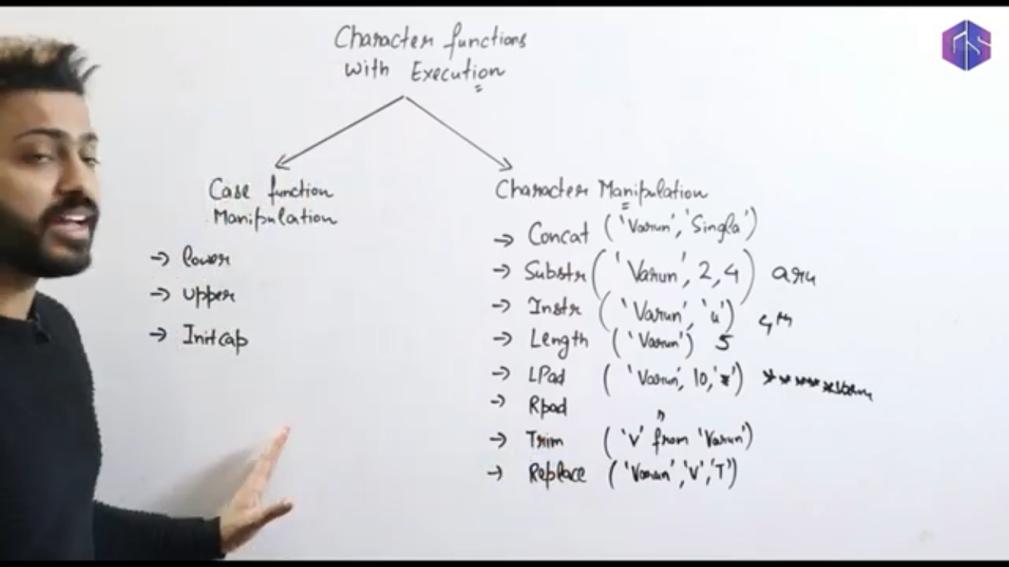 Character functions
with Execution
Case function
Manipulation
→ lower
→ upper
→ Initcap
Character Manipulation
→ Concat ('Varun', 'Singla')
→ Substr ('Varun', 2, 4) aru
→ Instr ('Varun', 'u') 4th
→ Length ('Varun') 5
→ LPad ('Varun', 10, '*') *****Varun
→ Rpad "
→ Trim ('V' from 'Varun')
→ Replace ('Varun', 'V', 'T')